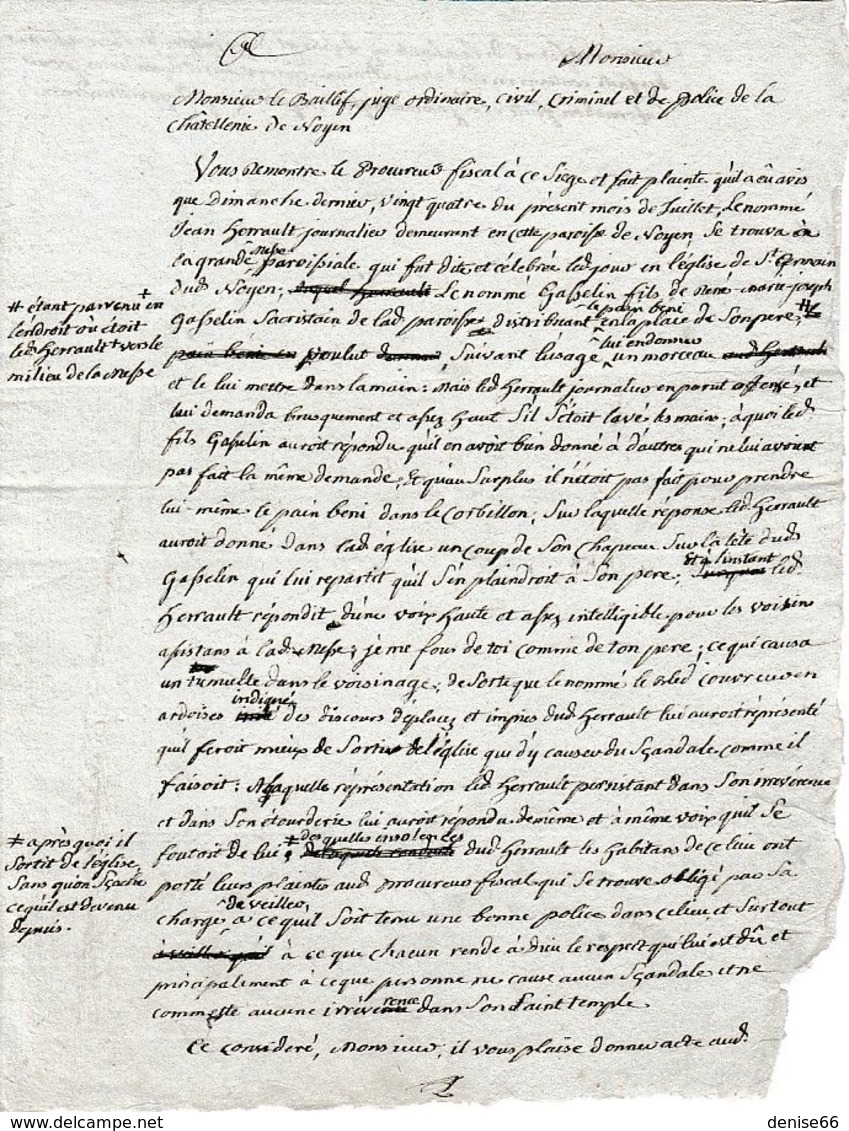 Monsieur
Monsieur le Baillif, juge ordinaire, civil, Criminel et de police de la
Châtellenie de Noyen
Vous Remontre le Procureur fiscal à ce Siege et fait plainte qu'il a eû avis
que Dimanche dernier, vingt quatre du présent mois de Juillet, Le nommé
Jean Herrault journalier demeurant en cette paroisse de Noyen, Se trouva à
la grande Messe paroissiale qui fut dite et célébrée led. jour en l'église de St. Germain
# étant parvenu + en
l'endroit où étoit
led. Herrault + vers le
milieu de la Messe
Dud. Noyen; Le nommé Gasselin fils de René-marie-joseph
Gasselin Sacristain de lad. paroisse distribuant le pain beni en la place de Son pere; #
pain beni en voulut Suivant l'usage lui en donner un morceau
et le lui mettre dans la main: Mais led. Herrault journalier en parut offensé, et
lui demanda brusquement et assez haut S'il S'étoit lavé les mains; à quoi led.
fils Gasselin auroit répondu qu'il en avoit bien donné à d'autres qui ne lui avoient
pas fait la même demande, Et qu'au Surplus il n'étoit pas fait pour prendre
lui-même le pain beni dans le Corbillon; Sur laquelle réponse led. Herrault
auroit donné dans lad. église un coup de Son chapeau Sur la tête dud.
Gasselin qui lui repartit qu'il S'en plaindroit à Son pere; Et à l'instant led.
Herrault répondit d'une voix haute et assez intelligible pour les voisins
assistans à lad. Messe; je me fous de toi comme de ton pere; ce qui causa
un tumulte dans le voisinage; de Sorte que le nommé le Bled couvreur en
ardoises indigné des discours déplacez et impies dud. Herrault lui auroit réprésenté
qu'il feroit mieux de Sortir de l'église que d'y causer du Sçandale comme il
faisoit: A laquelle réprésentation led. Herrault persistant dans Son irrévérence
et dans Son étourderie lui auroit répondu de même et à même voix qu'il Se
# après quoi il
Sortit de l'église,
Sans qu'on Sçache
ce qu'il est devenu
depuis.
foutoit de lui; # desquelles insolences dud. Herrault les habitans de ce lieu ont
porté leurs plaintes aud. procureur fiscal qui Se trouve obligé par Sa
charge de veiller à ce qu'il Soit tenu une bonne police dans ce lieu, et Surtout
à ce que chacun rende à Dieu le respect qui lui est dû et
principalement à ce que personne ne cause aucun Sçandale et ne
commette aucune irrévérence dans Son Saint temple.
Ce considéré, Monsieur, il vous plaise donner acte aud.
denise66